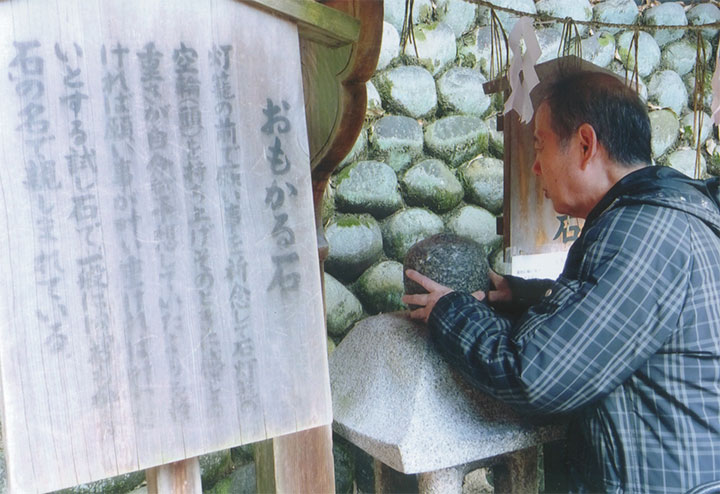 おもかる石
灯籠の前で願い事を祈念し石灯籠の
空輪(頭)を持ち上げそのときに感じる
重さが自分が予想していたよりも軽
ければ願い事が叶い重ければ叶い難
いとする試し石で一般には
石の名で親しまれている
石